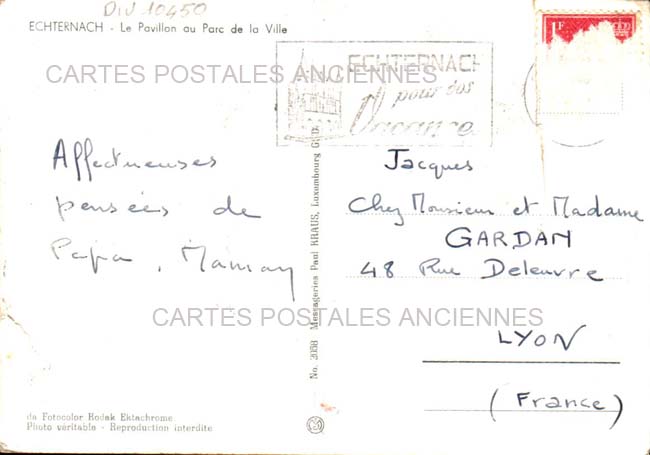 DIV 10450
ECHTERNACH - Le Pavillon au Parc de la Ville
1F
ECHTERNACH
pour vos
Vacances
CARTES POSTALES ANCIENNES
Affectueuses
pensées de
Papa, Maman
No. 3058 Messageries Paul KRAUS, Luxembourg
Jacques
Chez Monsieur et Madame
GARDAN
48 Rue Deleuvre
CARTES POSTALES ANCIENNES
LYON
(France)
da Fotocolor Kodak Ektachrome
Photo véritable - Reproduction interdite